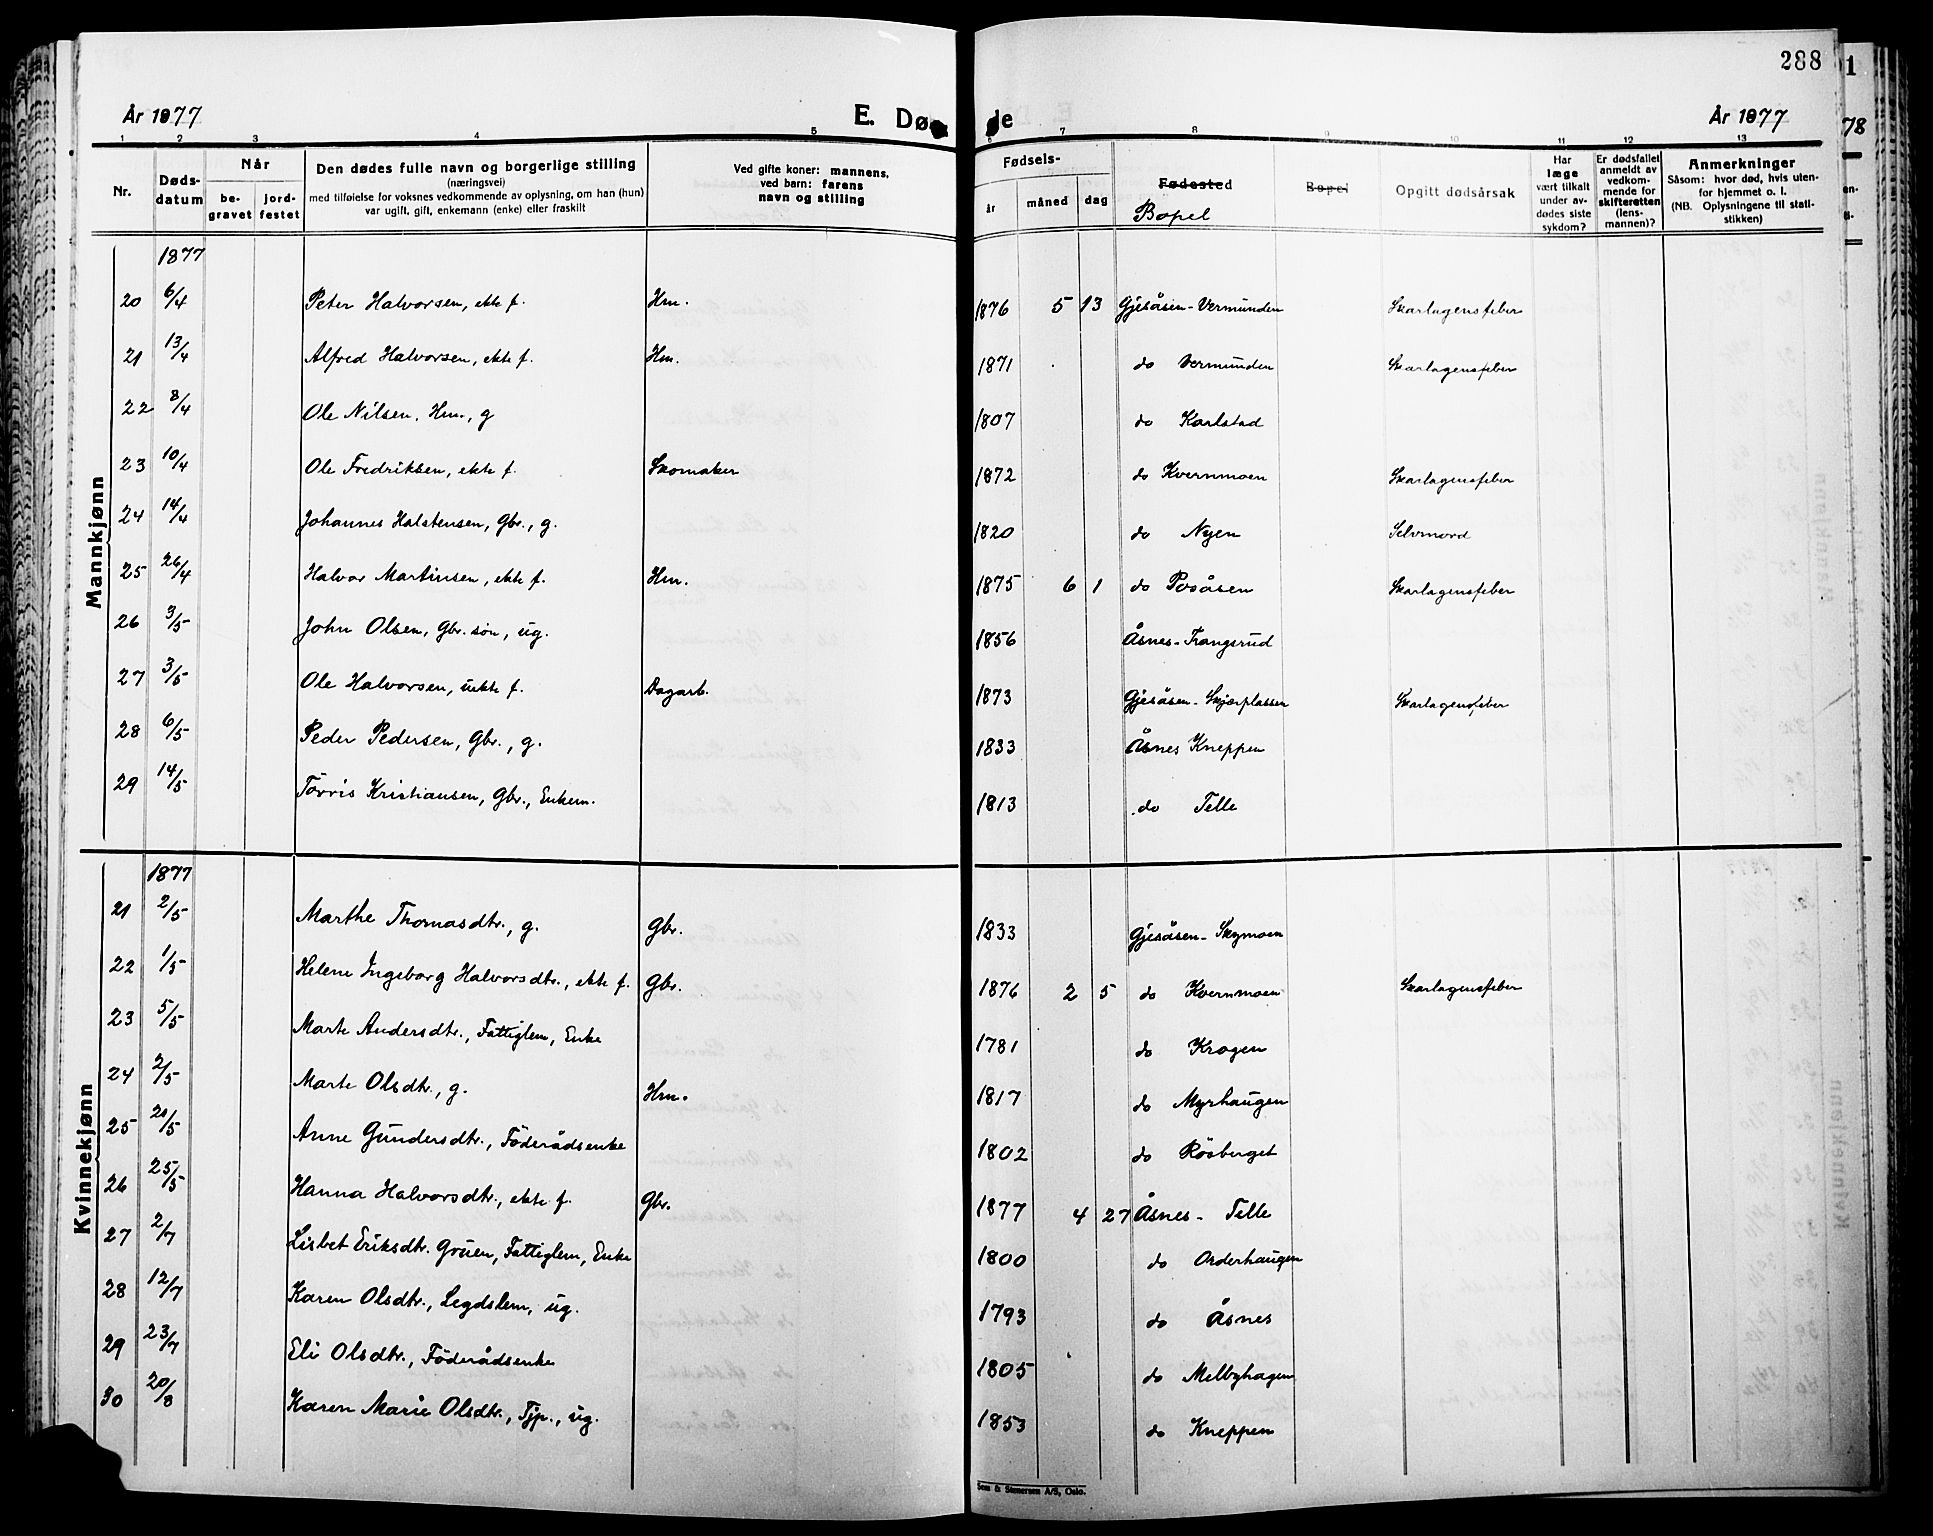 288
1
År 1877
E. Dø
de
År 1877
78
1 2 3 4 5 6 7 8 9 10 11 12 13
Nr.
Døds-
datum
Når
be-
gravet
jord-
festet
Den dødes fulle navn og borgerlige stilling
(næringsvei)
med tilføielse for voksnes vedkommende av oplysning, om han (hun)
var ugift, gift, enkemann (enke) eller fraskilt
Ved gifte koner: mannens,
ved barn: farens
navn og stilling
Fødsels-
år
måned
dag
Fødested
Bopel
Bopel
Opgitt dødsårsak
Har
læge
vært tilkalt
under av-
dødes siste
sykdom?
Er dødsfallet
anmeldt av
vedkom-
mende for
skifteretten
(lens-
mannen)?
Anmerkninger
Såsom: hvor død, hvis uten-
for hjemmet o. l.
(NB. Oplysningene til stati-
stikken)
Mannkjønn
1877
20 6/4 Peter Halvorsen, ekte f. Hm. 1876 5 13 Gjesåsen - Vermunden Skarlagensfeber
21 13/4 Alfred Halvorsen, ekte f. Hm. 1871 do Vermunden Skarlagensfeber
22 8/4 Ole Nilsen, Hm., g 1807 do Karlstad
23 10/4 Ole Fredriksen, ekte f. Skomaker 1872 do Kvernmoen Skarlagensfeber
24 14/4 Johannes Halstensen, Gbr., g. 1820 do Nyen Selvmord
25 26/4 Halvor Martinsen, ekte f. Hm. 1875 6 1 do Posåsen Skarlagensfeber
26 3/5 John Olsen, Gbr. søn, ug. 1856 Åsnes - Trangsrud
27 3/5 Ole Halvorsen, uekte f. Dagarb. 1873 Gjesåsen - Skjærplassen Skarlagensfeber
28 6/5 Peder Pedersen, Gbr., g. 1833 Åsnes Kneppen
29 14/5 Törris Kristiansen, Gbr., Enkem. 1813 do Telle
Kvinnekjønn
1877
21 2/5 Marthe Thomasdtr., g. Gbr. 1833 Gjesåsen - Skymoen
22 1/5 Helene Ingeborg Halvorsdtr., ekte f. Gbr. 1876 2 5 do Kvernmoen Skarlagensfeber
23 5/5 Marte Andersdtr., Fattiglem, Enke 1781 do Krogen
24 2/5 Marte Olsdtr., g. Hm. 1817 do Myrhaugen
25 21/5 Anne Gundersdtr., Föderådsenke 1802 do Rösberget
26 25/5 Hanna Halvorsdtr., ekte f. Gbr. 1877 4 27 Åsnes - Telle
27 2/7 Lisbet Eriksdtr. Gruen, Fattiglem, Enke 1800 do Orderhaugen
28 12/7 Karen Olsdtr., Legdslem, ug. 1793 do Åsnes
29 23/7 Eli Olsdtr., Föderådsenke 1805 do Melbyhagen
30 20/8 Karen Marie Olsdtr., Tjp., ug. 1853 do Kneppen
Sem & Stenersen A/S, Oslo.